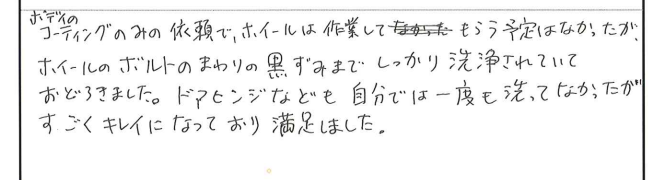 ボディの
コーティングのみの依頼で、ホイールは作業してもらう予定はなかったが、
ホイールのボルトのまわりの黒ずみまでしっかり洗浄されていて
おどろきました。ドアヒンジなども自分では一度も洗ってなかったが
すごくキレイになっており満足しました。